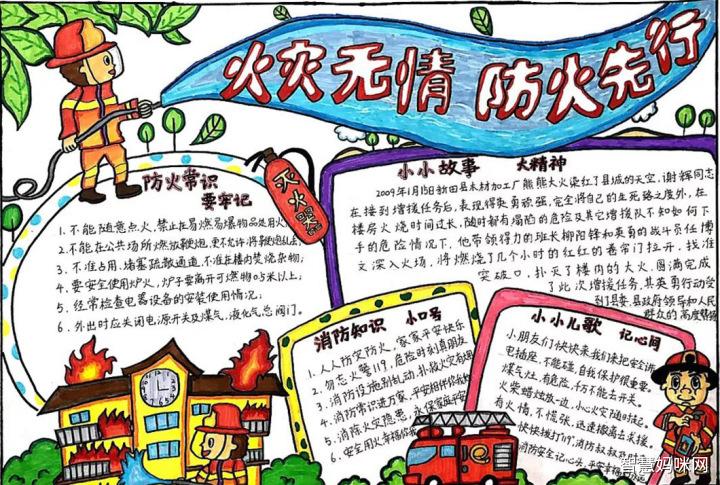 火灾无情 防火先行
防火常识
要牢记
1、不能随意点火,禁止在易燃易爆物品处用火;
2、不能在公共场所燃放鞭炮,更不允许将鞭炮
3、不准占用、堵塞疏散通道,不准在楼内焚烧杂物;
4、要安全使用炉火,炉子要离开可燃物0.5米以上;
5、经常检查电器设备的安装使用情况;
6、外出时应关闭电源开关及煤气,液化气总阀门。
灭火器
小小故事 大精神
2009年1月15日新田县木材加工厂熊熊大火染红了县城的天空,谢辉同志
在接到增援任务后,表现得英勇顽强,完全将自己的生死臵之度外,在
楼房火烧时间过长,随时都有塌陷的危险及其它增援队不知如何下
手的危险情况下,他带领得力的班长柳阳锋和英勇的战斗员任博
文深入火场,将燃烧了几个小时的红红的卷帘门拉开,找准
突破口,扑灭了楼内的大火,圆满完成
了此次增援任务,其英勇行动受
到县委、县政府领导和人民
群众的高度赞扬
消防知识 小口号
1、人人防灾防火,家家平安快乐
2、勿忘火警119,危险时刻真朋友
3、消防设施别乱动,扑救火灾有大用
4、消防常识进万家,平安相伴你我他
5、消除火灾隐患,永保家庭平安
6、安全用火幸福
小小儿歌 记心间
小朋友们快快来,我们来把安全讲。
电插座,不能碰,自我保护很重要。
煤气灶,有危险,千万不能去开关。
火柴蜡烛放一边,小心火灾随时起。
有火情,不慌张,迅速撤离去求援。
快快拨打119,消防叔叔及时
消防安全记心头,平安幸福
智慧妈咪网